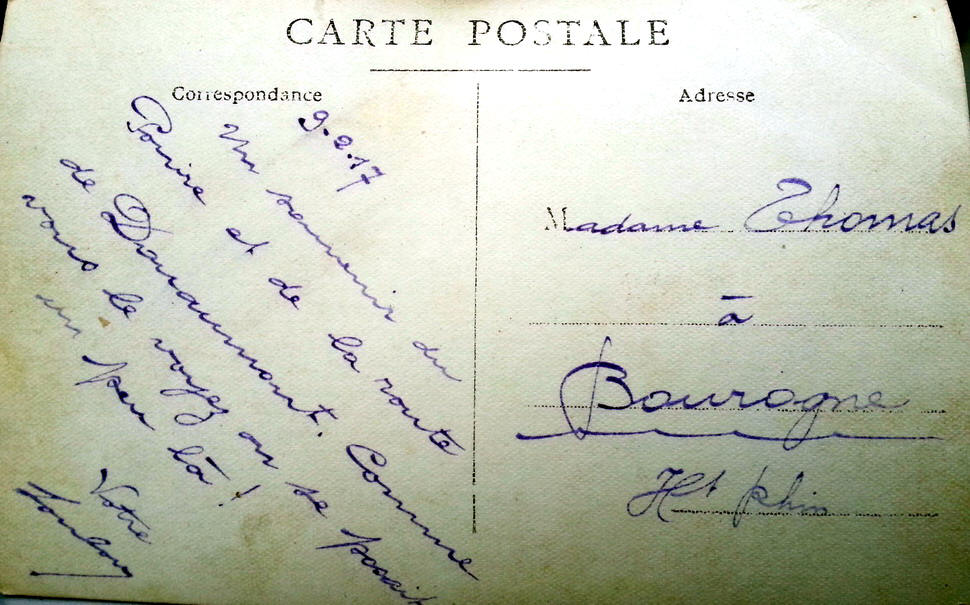 CARTE POSTALE
Correspondance
Adresse
9.2.17
Un souvenir du
et de la route
de Douaumont. Comme
vous le voyez on se
un peu là !
Votre
Madame Thomas
à
Bourogne
Ht Rhin